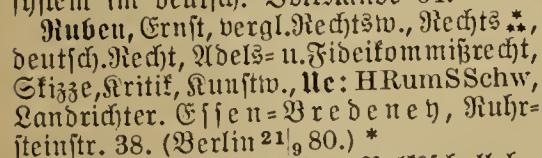 Ruben, Ernſt, vergl. Rechtsw., Rechts⁂,
deutſch. Recht, Adels= u. Fideikommißrecht,
Skizze, Kritik, Kunſtw., Uc: HRumSSchw,
Landrichter. Eſſen=Bredeney, Ruhr=
ſteinſtr. 38. (Berlin 21|9 80.) *